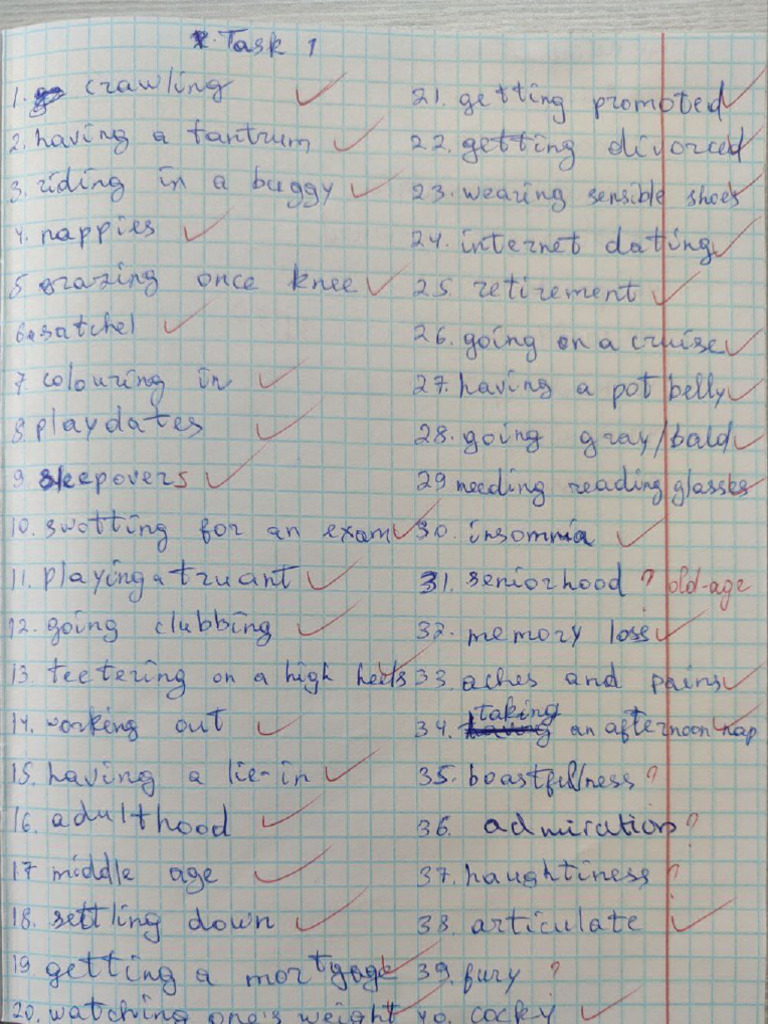 Task 1
1. crawling
2. having a tantrum
3. riding in a buggy
4. nappies
5 grazing once knee
6. satchel
7 colouring in
8. playdates
9. sleepovers
10. swotting for an exam
11. playing a truant
12. going clubbing
13. teetering on a high heels
14. working out
15. having a lie-in
16. adulthood
17 middle age
18. settling down
19 getting a mortgage
20. watching one's weight
21. getting promoted
22. getting divorced
23. wearing sensible shoes
24. internet dating
25. retirement
26. going on a cruise
27. having a pot belly
28. going gray/bald
29 needing reading glasses
30. insomnia
31. seniorhood ? old-age
32. memory loss
33. aches and pains
34. taking an afternoon nap
35. boastfulness ?
36. admiration ?
37. haughtiness ?
38. articulate
39. fury ?
40. cocky